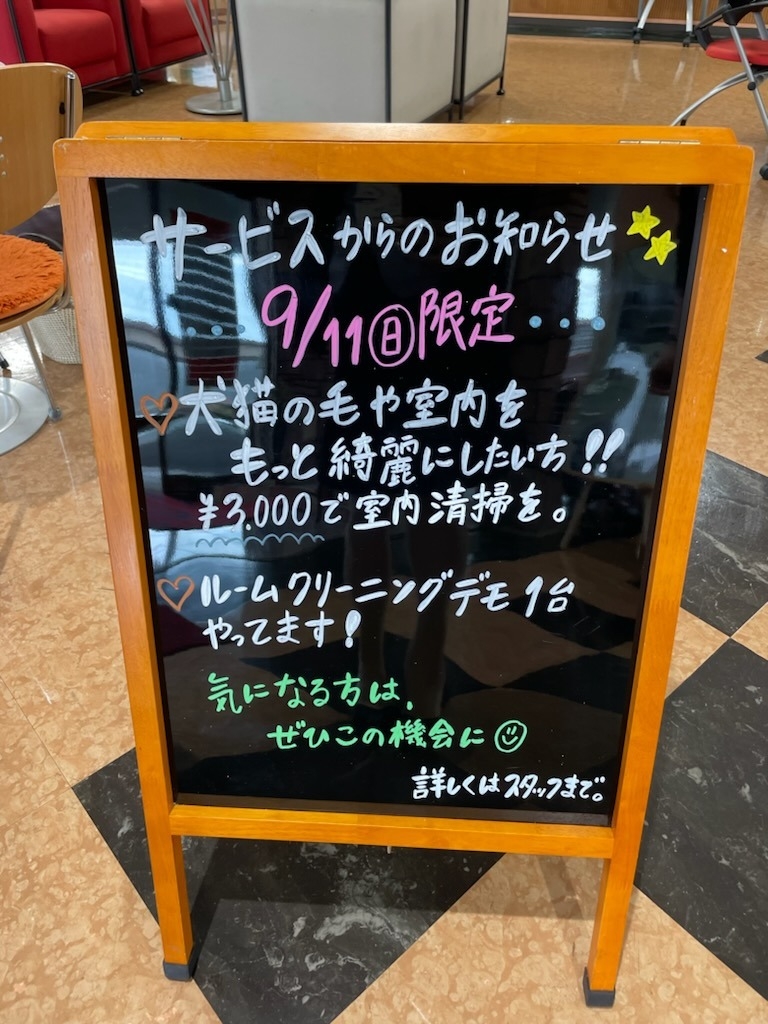 サービスからのお知らせ
9/11㊐限定
犬猫の毛や室内を
もっと綺麗にしたい方!!
¥3,000で室内清掃を。
ルームクリーニングデモ1台
やってます!
気になる方は、
ぜひこの機会に
詳しくはスタッフまで。